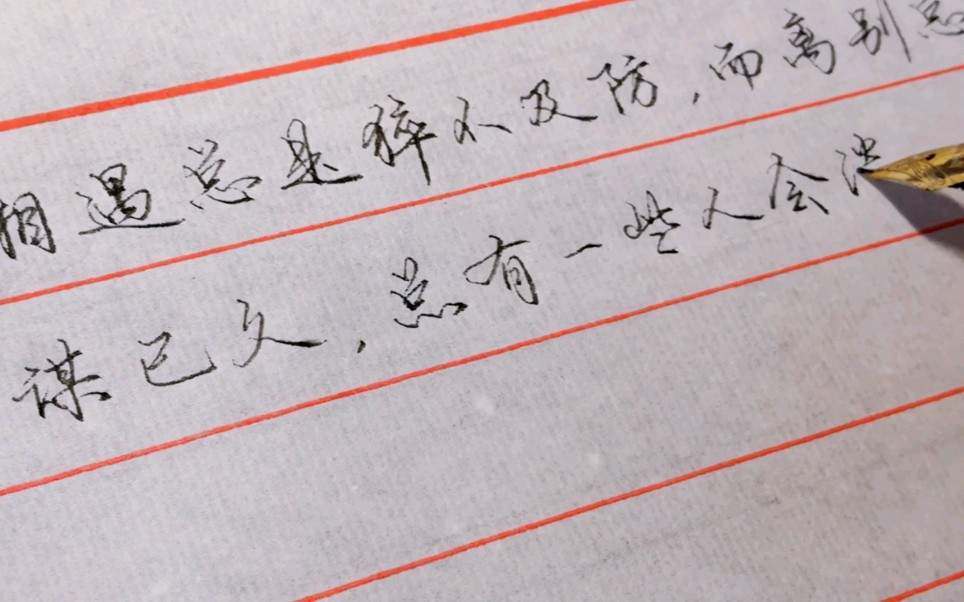 相遇总是猝不及防，而离别总
谋已久，总有一些人会